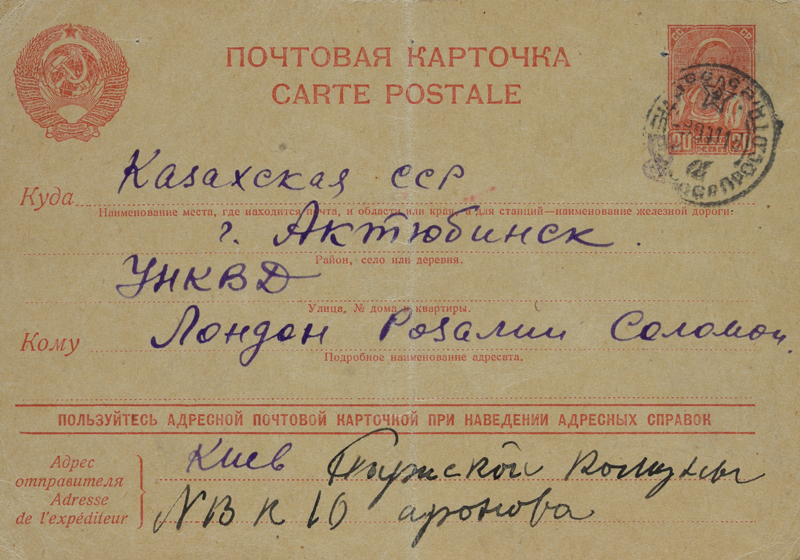 ПОЧТОВАЯ КАРТОЧКА
CARTE POSTALE
СС СР
20 20
Куда Казахская ССР
Наименование места, где находится почта, и области или края, а для станций—наименование железной дороги:
г. Актюбинск.
Район, село или деревня.
УНКВД
Улица, № дома и квартиры.
Кому Лондон Розалии Соломон.
Подробное наименование адресата.
ПОЛЬЗУЙТЕСЬ АДРЕСНОЙ ПОЧТОВОЙ КАРТОЧКОЙ ПРИ НАВЕДЕНИИ АДРЕСНЫХ СПРАВОК
Адрес
отправителя
Adresse
de l'expéditeur
Киев Коммуны
к 10 аронова